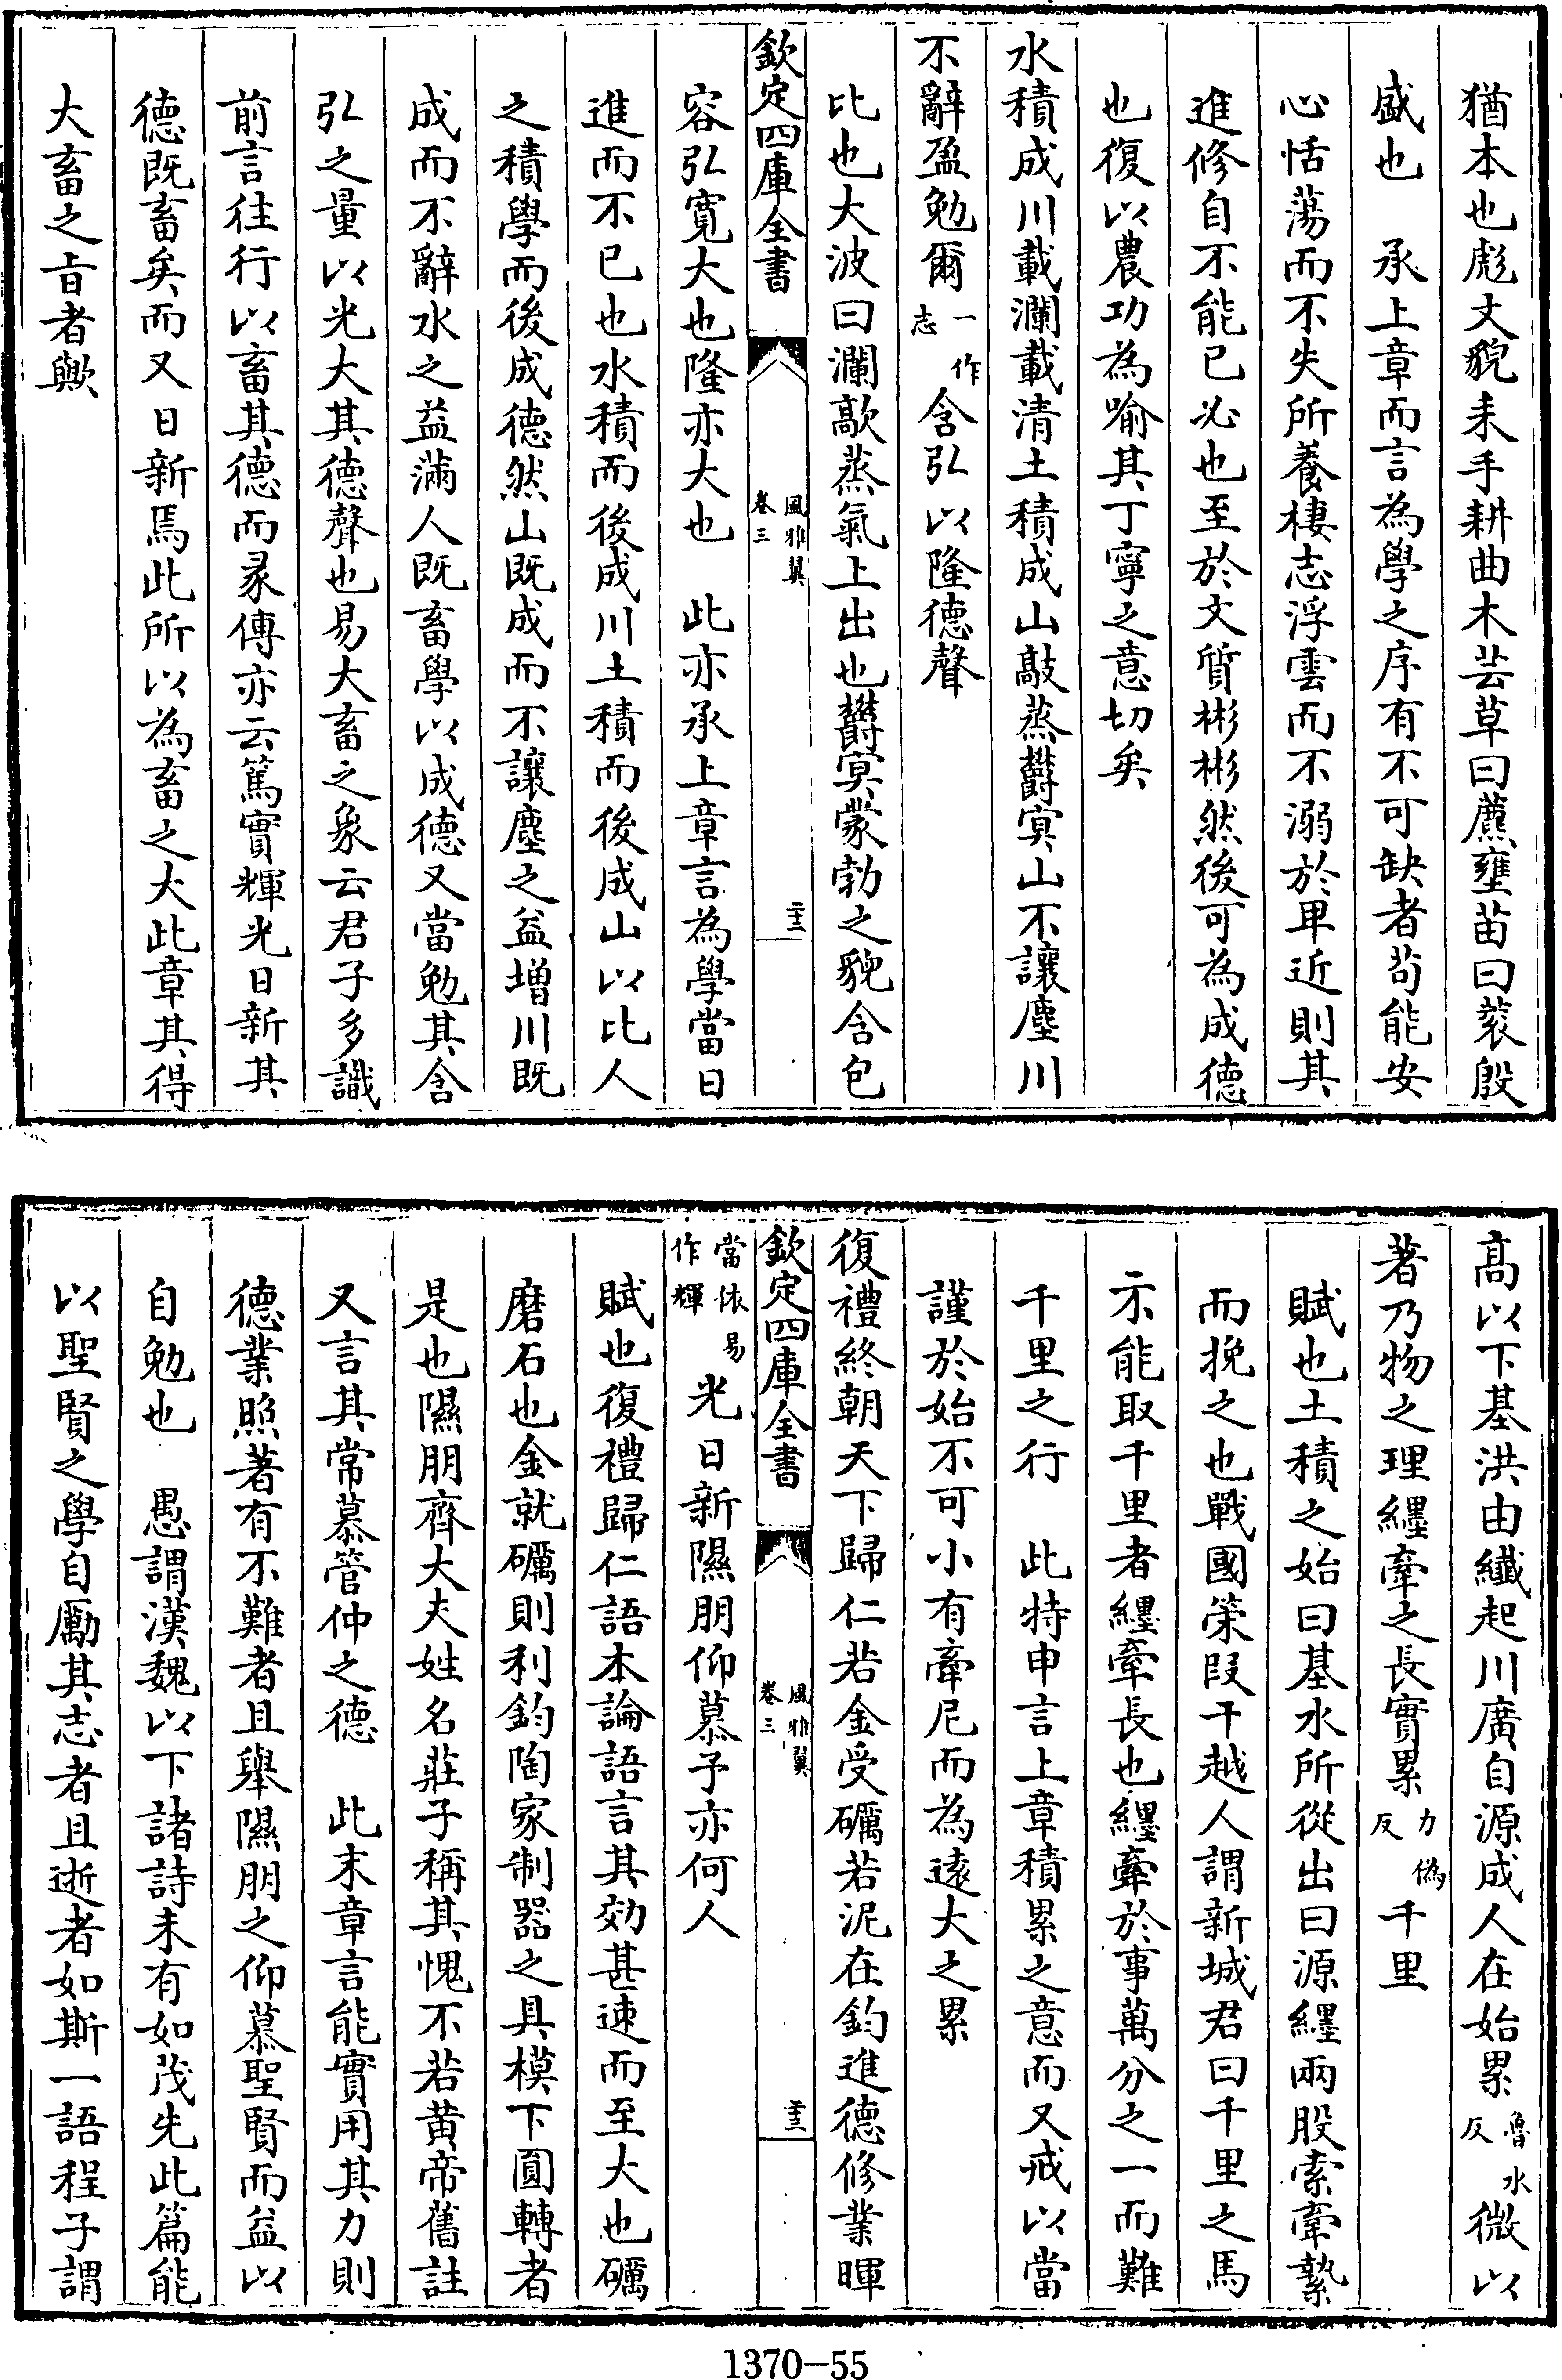 猶本也彪文貌耒手耕曲木芸草曰藨壅苗曰蓘殷
盛也　承上章而言為學之序有不可缺者茍能安
心恬蕩而不失所養棲志浮雲而不溺於卑近則其
進修自不能已必也至於文質彬彬然後可為成德
也復以農功為喻其丁寧之意切矣
水積成川載瀾載清土積成山歊蒸欝冥山不讓塵川
不辭盈勉爾一作志含弘以隆德聲
比也大波曰瀾歊蒸氣上出也欝冥蒙勃之貌含包
欽定四庫全書　風雅翼卷三　二十二
容弘寛大也隆亦大也　此亦承上章言為學當日
進而不已也水積而後成川土積而後成山以比人
之積學而後成德然山既成而不讓塵之益增川既
成而不辭水之益滿人既畜學以成德又當勉其含
弘之量以光大其德聲也易大畜之象云君子多識
前言往行以畜其德而彖傳亦云篤實輝光日新其
德既畜矣而又日新焉此所以為畜之大此章其得
大畜之旨者歟
髙以下基洪由纖起川廣自源成人在始累魯水反微以
著乃物之理纆牽之長實累力偽反千里
賦也土積之始曰基水所從出曰源纆兩股索牽縶
而挽之也戰國策段干越人謂新城君曰千里之馬
不能取千里者纆牽長也纆牽於事萬分之一而難
千里之行　此特申言上章積累之意而又戒以當
謹於始不可小有牽尼而為遠大之累
復禮終朝天下歸仁若金受礪若泥在鈞進德修業暉
欽定四庫全書　風雅翼卷三　二十三
當依易作輝光日新隰朋仰慕予亦何人
賦也復禮歸仁語本論語言其効甚速而至大也礪
磨石也金就礪則利鈞陶家制器之具模下圓轉者
是也隰朋齊大夫姓名莊子稱其愧不若黄帝舊註
又言其常慕管仲之德　此末章言能實用其力則
德業照著有不難者且舉隰朋之仰慕聖賢而益以
自勉也　愚謂漢魏以下諸詩未有如茂先此篇能
以聖賢之學自勵其志者且逝者如斯一語程子謂
1370-55